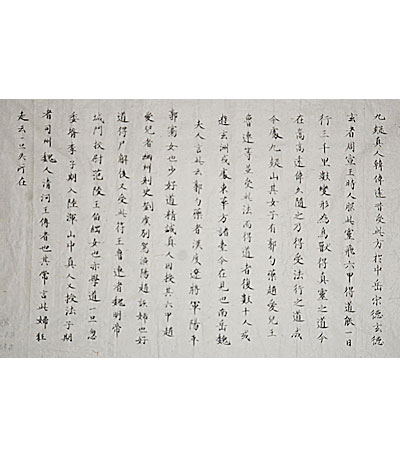 九疑真人韓偉遠昔受此方於中岳宋德玄德
玄者周宣王時人服此靈飛六甲得道能一日
行三千里數變形為鳥獸得真靈之道今
在嵩高偉遠久隨之乃得受法行之道成
今處九疑山其女子有郭勺藥趙愛兒王
魯連等並受此法而得道者復數十人或
遊玄洲或處東華方諸臺今在見也南岳魏
夫人言此云郭勺藥者漢度遼將軍陽平
郭騫女也少好道精誠真人因授其六甲趙
愛兒者幽州刺史劉虞別駕漁陽趙該姊也好
道得尸解後又受此符王魯連者魏明帝
城門校尉范陵王伯綱女也亦學道一旦忽
委婿李子期入陸渾山中真人又授法子期
者司州魏人清河王傳者也其常言此婦狂
走云一旦失所在